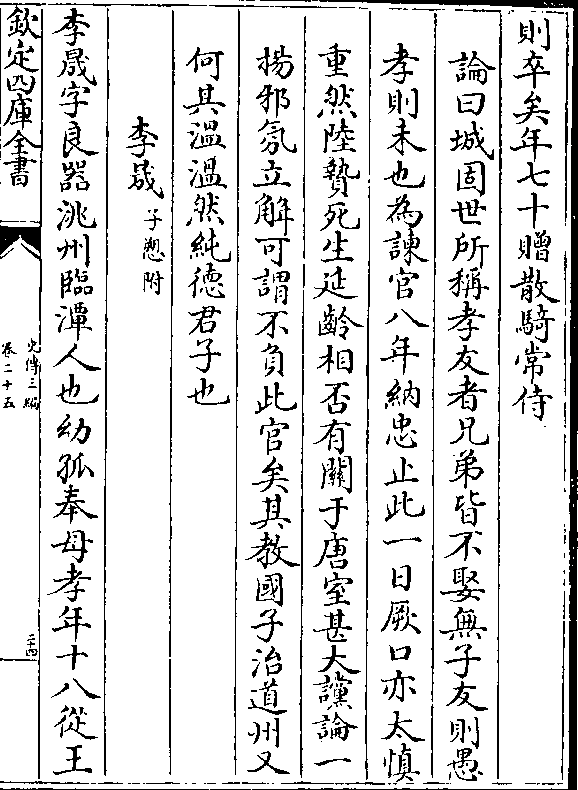 則卒矣年七十贈散騎常侍
論曰城固世所稱孝友者兄弟皆不娶無子友則愚
孝則未也為諫官八年納忠止此一日厥口亦太慎
重然陸贄死生延齡相否有關于唐室甚大讜論一
揚邪氛立解可謂不負此官矣其教國子治道州又
何其溫溫然純德君子也
李晟子愬附
李晟字良器洮州臨潭人也幼孤奉母孝年十八從王
欽定四庫全書
史傳三編
卷二十五
二十四